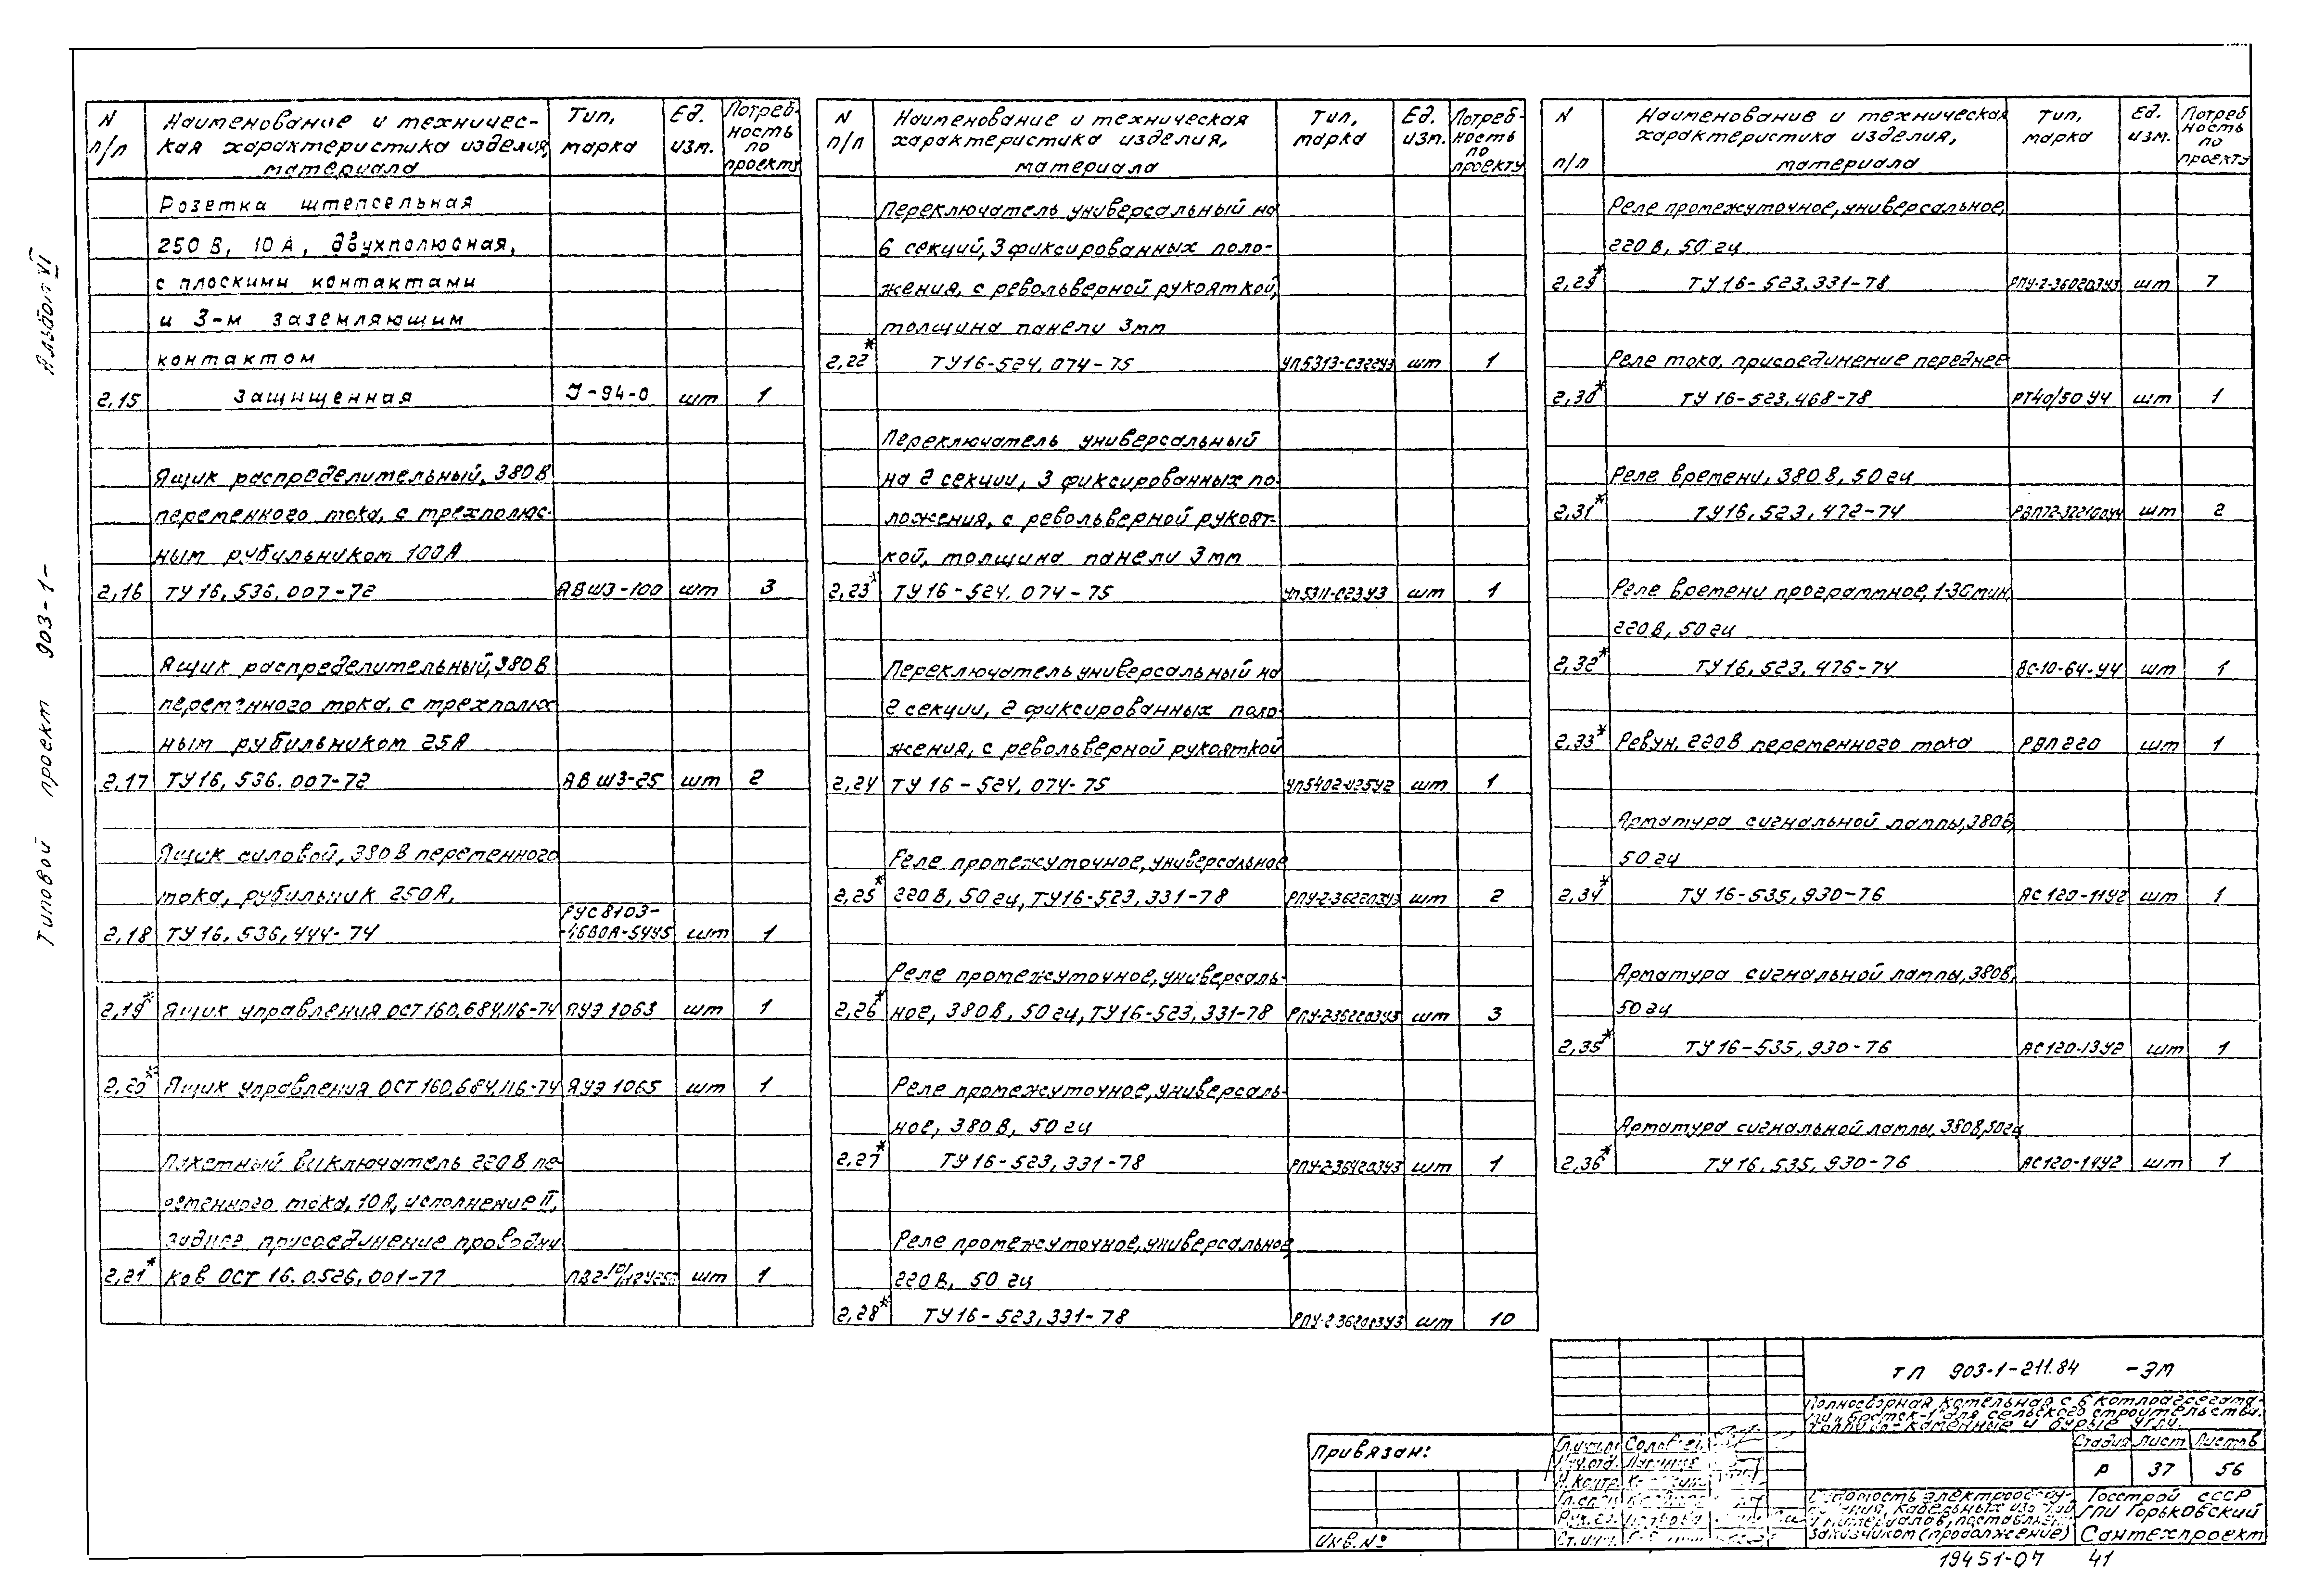 Альбом VI
Типовой проект 903-1-
N п/п
Наименование и техничес-
кая характеристика изделия,
материала
Тип, марка
Ед. изм.
Потреб-
ность
по
проекту
Розетка штепсельная
250 В, 10 А, двухполюсная,
с плоскими контактами
и 3-м заземляющим
контактом
2,15 Защищенная У-94-0 шт 1
Ящик распределительный, 380 В
переменного тока, с трехполюс-
ным рубильником 100А
2,16 ТУ 16, 536, 007-72 АВШЗ-100 шт 3
Ящик распределительный, 380 В
переменного тока, с трехполюс
ным рубильником 25А
2,17 ТУ 16, 536. 007-72 АВШЗ-25 шт 2
Ящик силовой, 380 В переменного
тока, рубильник 250А,
РУС 8103-
2,18 ТУ 16, 536, 444-74 шт 1
2,19* Ящик управления ОСТ 160,684,116-74 ЯУЭ 1063 шт 1
2,20* Ящик управления ОСТ 160,684,116-74 ЯУЭ 1065 шт 1
Пакетный выключатель 220 В пе-
ременного тока, 10 А, исполнение II,
заднее присоединение проводни
2,21* ков ОСТ 16. 0.526, 001-77 шт 1
N п/п
Наименование и техническая
характеристика изделия,
материала
Тип, марка
Ед. изм.
Потреб-
ность
по
проекту
Переключатель универсальный на
6 секций, 3 фиксированных поло-
жения, с револьверной рукояткой,
толщина панели 3мм
2,22* ТУ16-524, 074-75 УП5313-С322У3 шт 1
Переключатель универсальный
на 2 секции, 3 фиксированных по-
ложения, с револьверной рукоят-
кой, толщина панели 3мм
2,23* ТУ 16-524. 074-75 УП5311-С23У3 шт 1
Переключатель универсальный на
2 секции, 2 фиксированных поло-
жения, с револьверной рукояткой
2,24 ТУ 16-524, 074-75 шт 1
Реле промежуточное, универсальное
2,25* 220 В, 50 гц, ТУ16-523, 331-78 РПУ-2-36220У3 шт 2
Реле промежуточное, универсаль-
2,26* ное, 380 В, 50 гц, ТУ16-523, 331-78 шт 3
Реле промежуточное, универсаль-
ное, 380 В, 50 гц
2,27* ТУ 16-523, 331-78 РПУ-2-36420У3 шт 1
Реле промежуточное, универсальное
220 В, 50 гц
2,28* ТУ 16-523, 331-78 РПУ-2 36200У3 шт 10
N п/п
Наименование и техническая
характеристика изделия,
материала
Тип, марка
Ед. изм.
Потреб
ность
по
проекту
Реле промежуточное, универсальное,
220 В, 50 гц
2,29* ТУ 16-523, 331-78 РПУ-2-36020У3 шт 7
Реле тока, присоединение переднее
2,30* ТУ 16-523, 468-78 РТ40/50 У4 шт 1
Реле времени, 380 В, 50 гц
2,31* ТУ16, 523, 472-74 РВП72-3221 00У4 шт 2
Реле времени программное, 1-30мин,
220 В, 50 гц
2,32* ТУ 16, 523, 476-74 ВС-10-64-У4 шт 1
2,33* Ревун, 220 В переменного тока РВП 220 шт 1
Арматура сигнальной лампы, 380 В,
50 гц
2,34* ТУ 16-535, 930-76 АС 120-11У2 шт 1
Арматура сигнальной лампы, 380В,
50 гц
2,35* ТУ 16-535, 930-76 АС120-13У2 шт 1
Арматура сигнальной лампы, 380В, 50гц
2,36* ТУ 16, 535, 930-76 АС120-14У2 шт 1
ТП 903-1-211.84 -ЭМ
Полносборная котельная с 6 котлоагрегата-
ми „Братск-1" для сельского строительства.
Топливо - каменные и бурые угли.
Стадия Лист Листов
Р 37 56
Привязан:
Инв. №
Нач.отд.
Н.контр.
Ведомость электрообору-
дования, кабельных изделий
и материалов, поставляем
заказчиком (продолжение)
Госстрой СССР
ГПИ Горьковский
Сантехпроект
19451-07 41